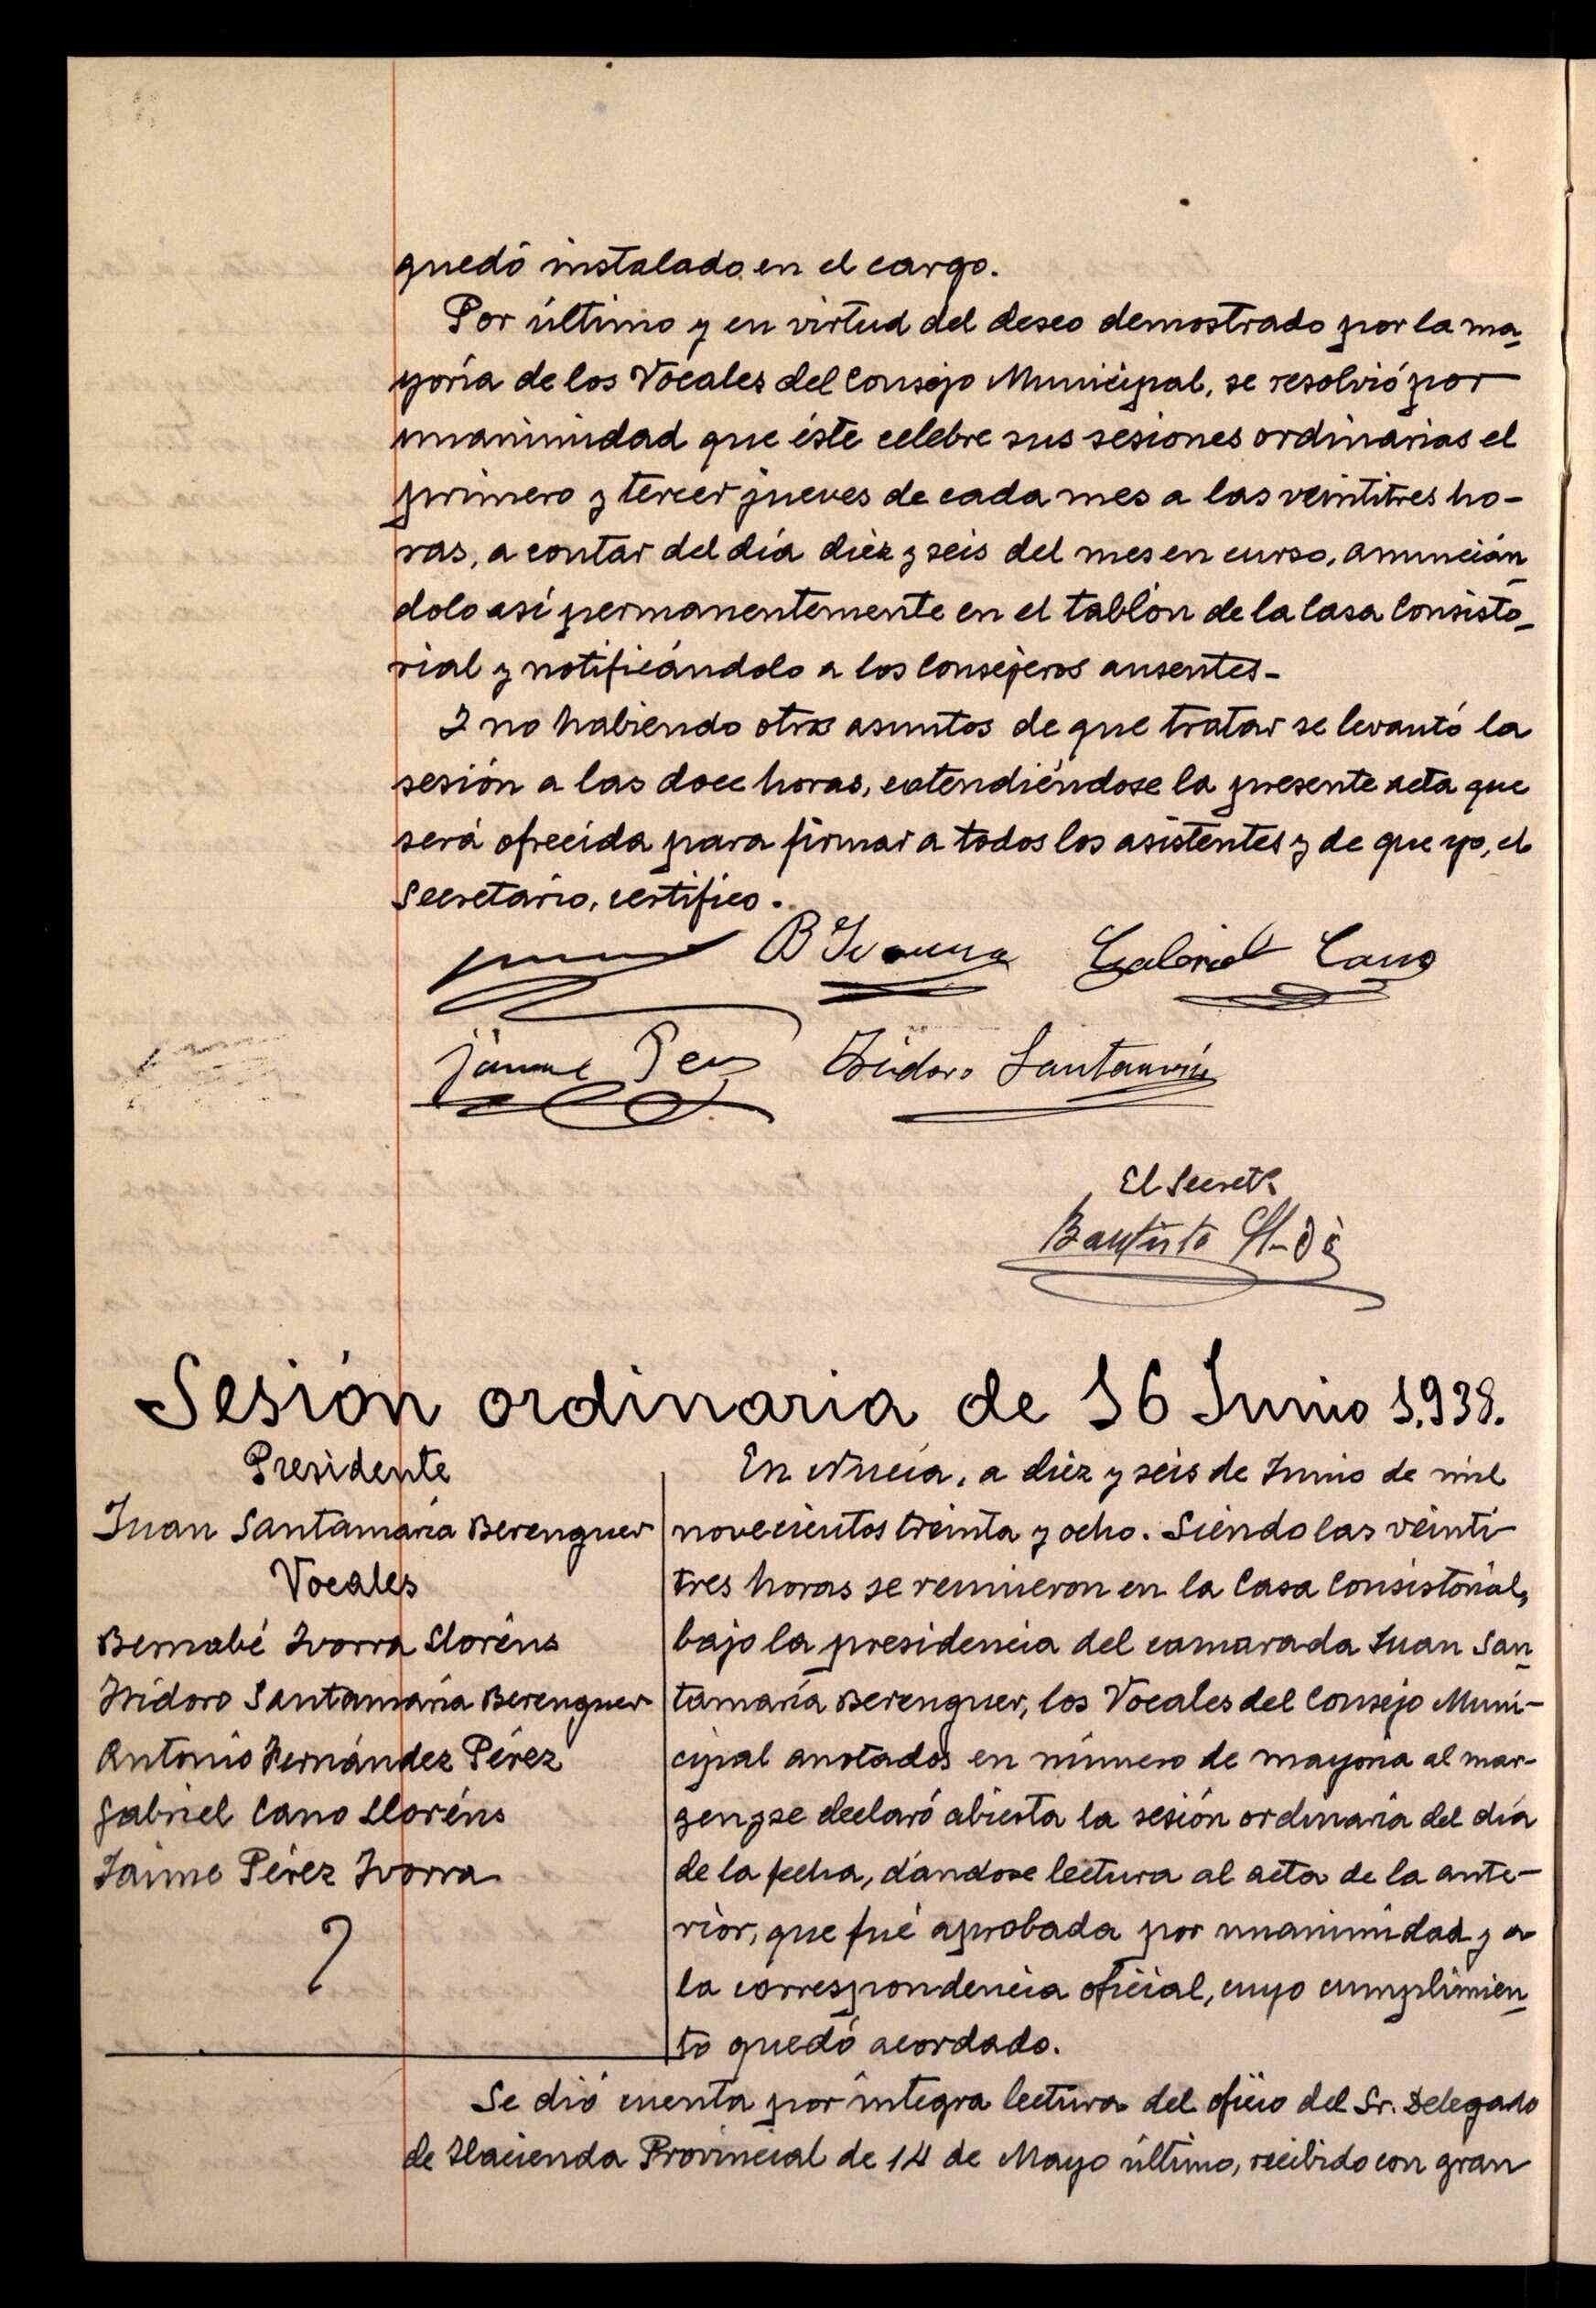 quedó instalado en el cargo.
Por último y en virtud del deseo demostrado por la ma-
yoría de los Vocales del Consejo Municipal, se resolvió por
unanimidad que éste celebre sus sesiones ordinarias el
primero y tercer jueves de cada mes a las veintitres ho-
ras, a contar del día diez y seis del mes en curso, anuncián-
dolo así permanentemente en el tablón de la Casa Consisto-
rial y notificándolo a los Consejeros ausentes-
Y no habiendo otros asuntos de que tratar se levantó la
sesión a las doce horas, extendiéndose la presente acta que
será ofrecida para firmar a todos los asistentes y de que yo, el
Secretario, certifico.
B Ivorra Gabriel Cano
Jaime Perez Isidoro Santamaría
El Secret?
Bautista
Sesión ordinaria de 16 Junio 1.938.
Presidente
Juan Santamaría Berenguer
Vocales
Bernabé Ivorra Lloréns
Isidoro Santamaría Berenguer
Antonio Fernández Pérez
Gabriel Cano Lloréns
Jaime Pérez Ivorra
En Nucía, a diez y seis de Junio de mil
novecientos treinta y ocho. Siendo las veinti-
tres horas se reunieron en la Casa Consistorial,
bajo la presidencia del camarada Juan San-
tamaría Berenguer, los Vocales del Consejo Muni-
cipal anotados en número de mayoría al mar-
gen y se declaró abierta la sesión ordinaria del día
de la fecha, dándose lectura al acta de la ante-
rior, que fué aprobada por unanimidad y a
la correspondencia oficial, cuyo cumplimien-
to quedó acordado.
Se dió cuenta por íntegra lectura del oficio del Sr. Delegado
de Hacienda Provincial de 14 de Mayo último, recibido con gran